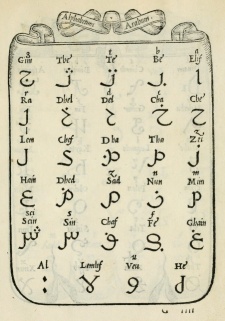 Alphabetum Arabum
g t b a
Gin The Te Be Elif
ج ث ت ب ا
r d
Ra Dhel Del Cha Che
ر ذ د خ ح
Lem Chef Dha Tho Zei
ل ك ظ ط ز
n m
Hain Dhed Sad Nun Mim
ع ض ص ن م
sci s f
Scin Sin Chaf Fe Ghain
ش س ق ف غ
u
Al Lemlif Veu He
لا و ه